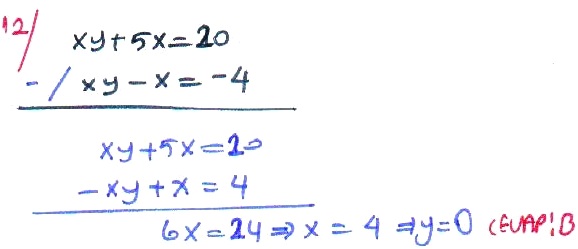 12/ xy+5x=20
-/ xy-x=-4
xy+5x=20
-xy+x=4
6x=24⇒x=4⇒y=0 CEVAP:B